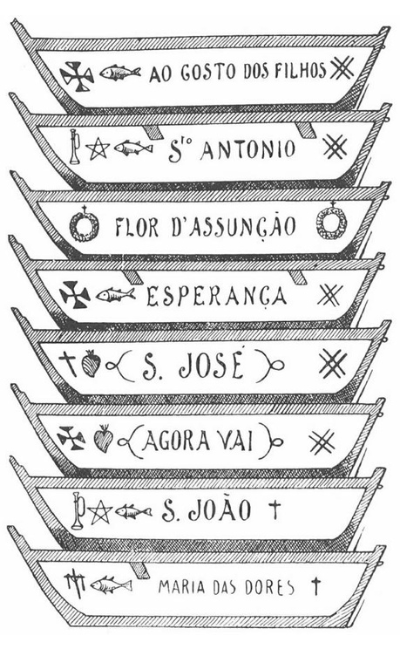 AO GOSTO DOS FILHOS
Sto ANTONIO
FLOR D'ASSUNÇÃO
ESPERANÇA
S. JOSÉ
AGORA VAI
S. JOÃO
MARIA DAS DORES